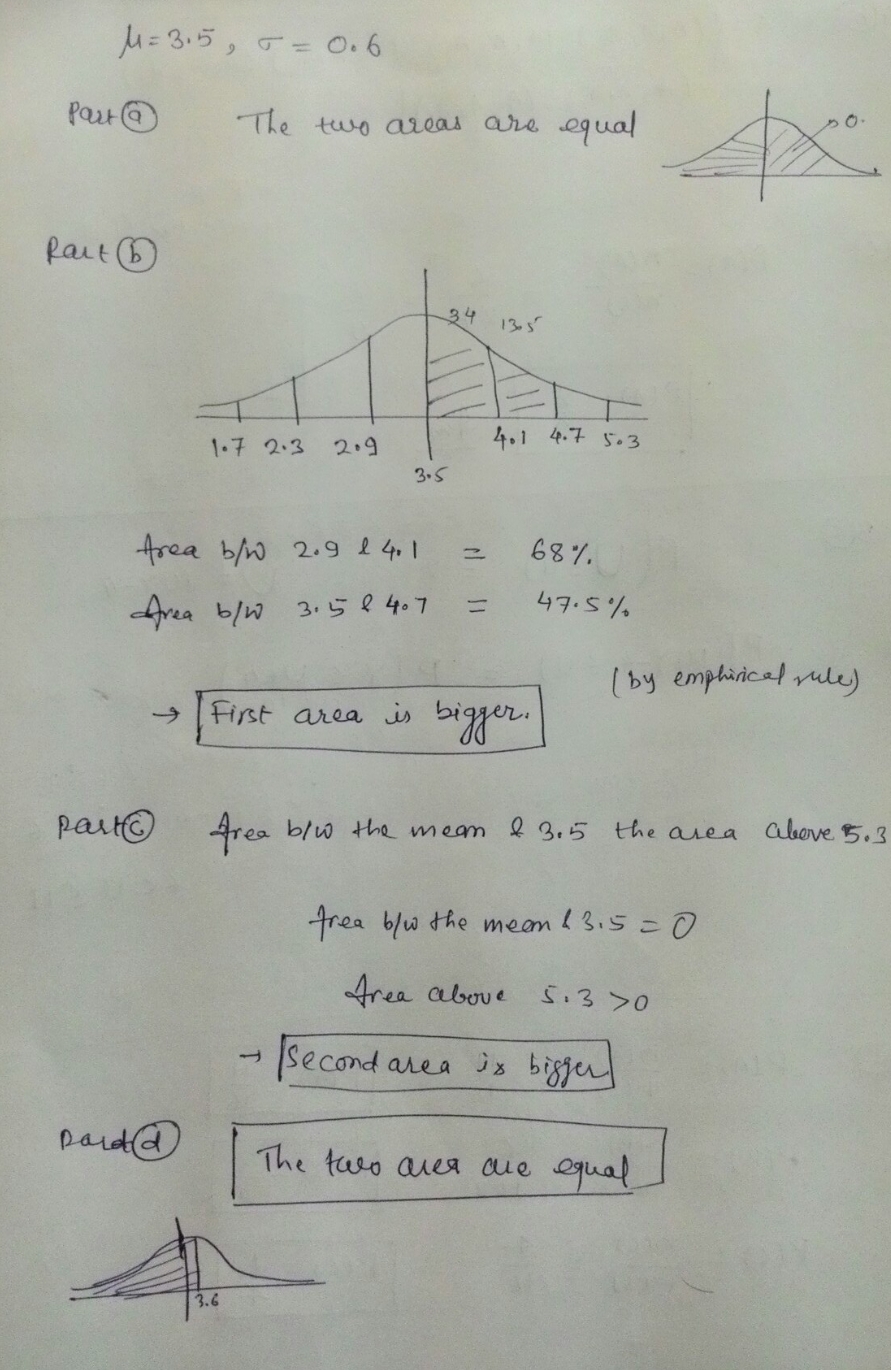 μ = 3.5, σ = 0.6
Part ⓐ The two areas are equal
0.
Part ⓑ
34 13.5
1.7 2.3 2.9 4.1 4.7 5.3
3.5
Area b/w 2.9 & 4.1 = 68%.
Area b/w 3.5 & 4.7 = 47.5%
(by emphirical rule)
→ First area is bigger.
Part ⓒ Area b/w the mean & 3.5 the area above 5.3
Area b/w the mean & 3.5 = 0
Area above 5.3 >0
→ Second area is bigger
Part ⓓ
The two area are equal
3.6